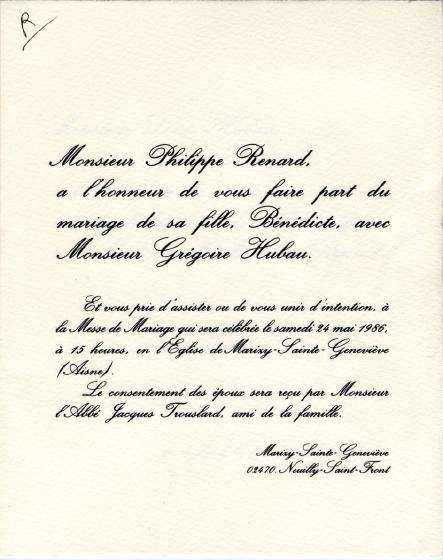 R
Monsieur Philippe Renard,
a l'honneur de vous faire part du
mariage de sa fille, Bénédicte, avec
Monsieur Grégoire Hubau.
Et vous prie d'assister ou de vous unir d'intention, à
la Messe de Mariage qui sera célébrée le samedi 24 mai 1986,
à 15 heures, en l'Eglise de Marizy-Sainte-Geneviève
(Aisne).
Le consentement des époux sera reçu par Monsieur
l'Abbé Jacques Trouslard, ami de la famille.
Marizy-Sainte-Geneviève
02470. Neuilly-Saint-Front